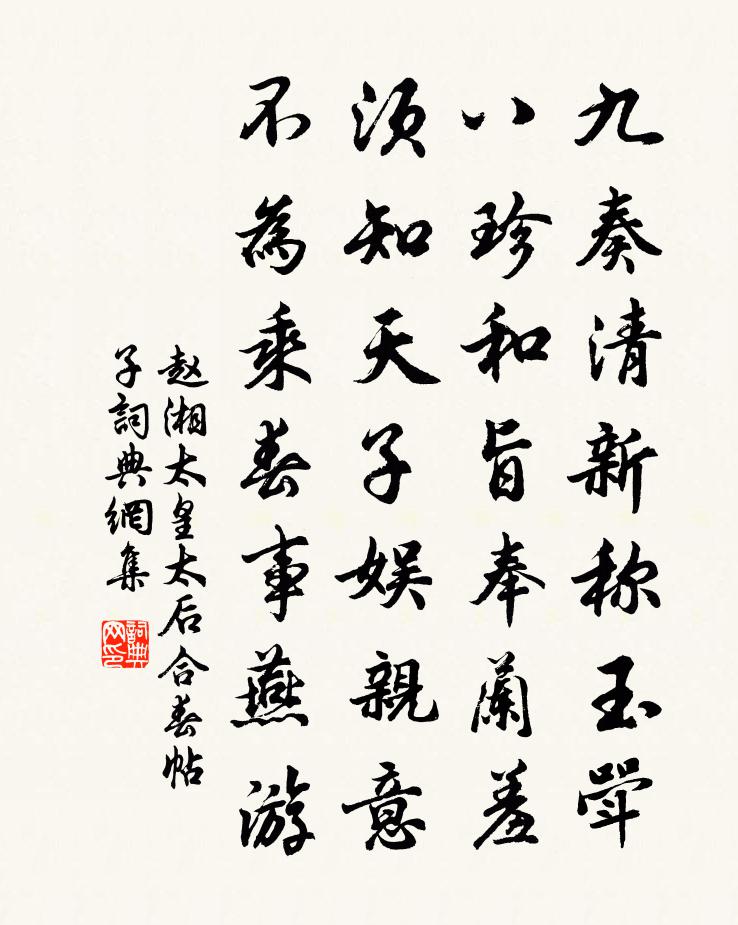 九奏清新称玉斝
八珍和旨奉蘭羞
須知天子娱親意
不為乘春事燕游
赵湘太皇太后合春帖
子詞典網集
詞典网印